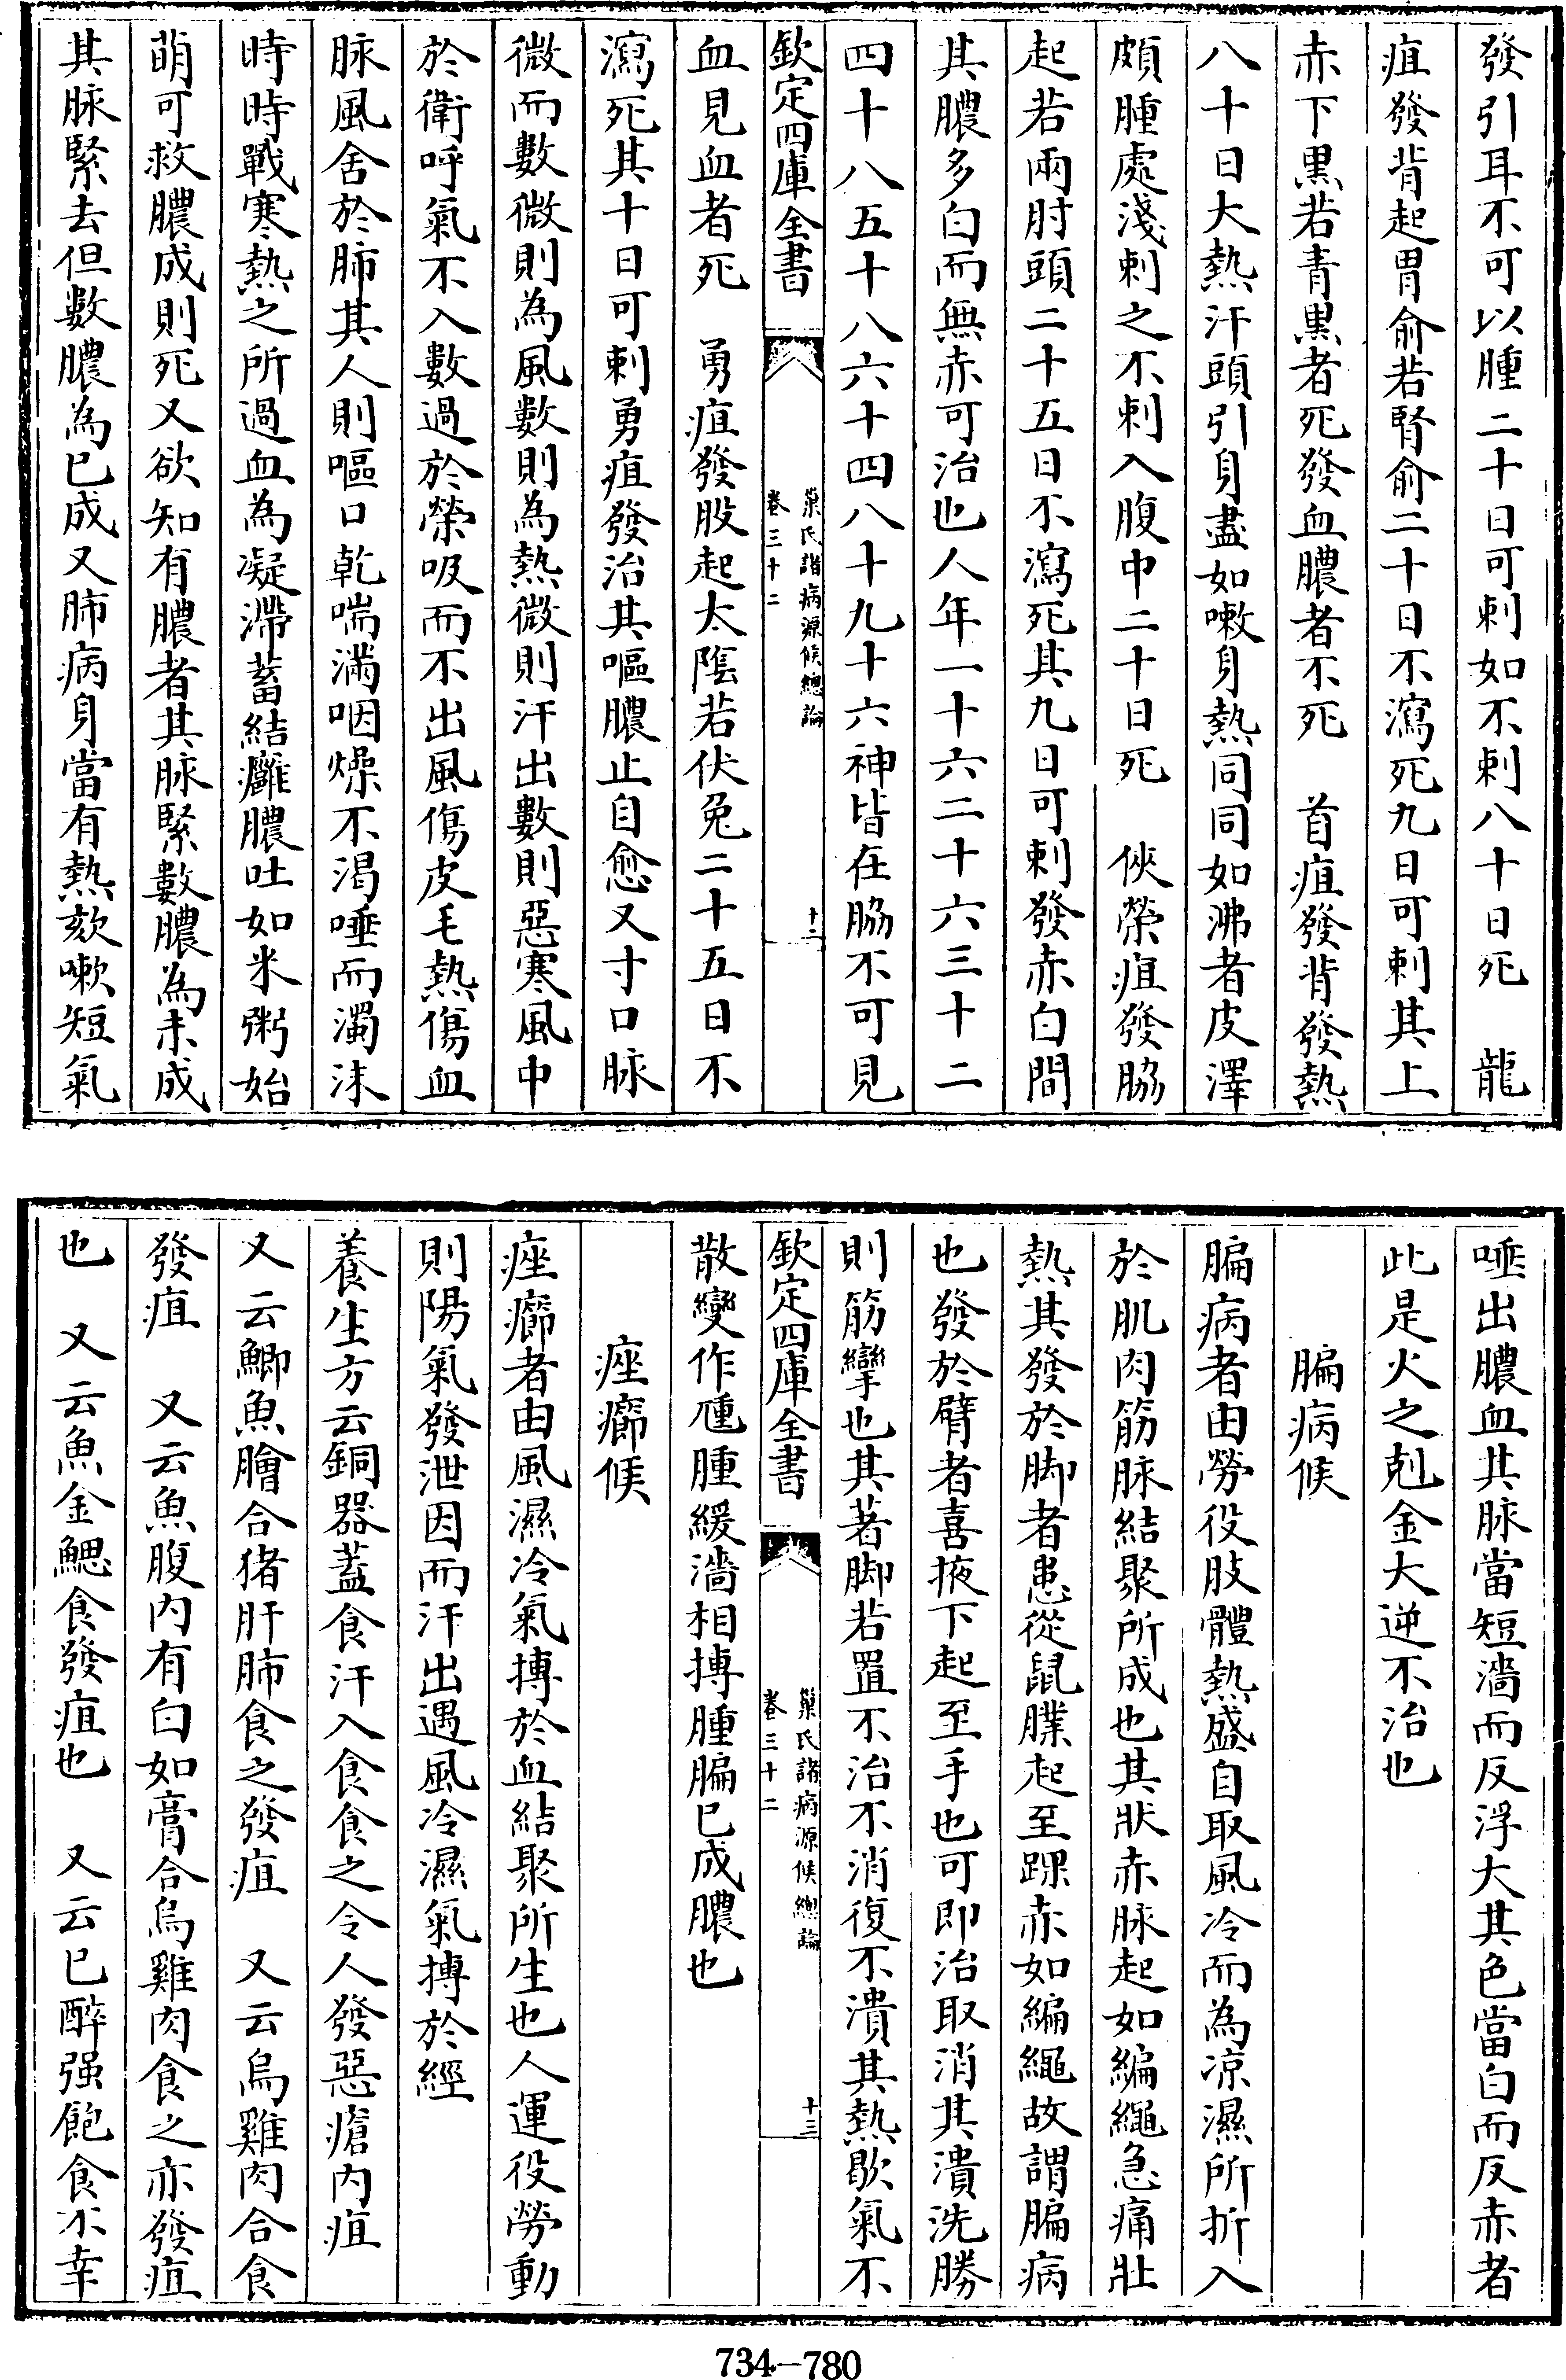 發引耳不可以腫二十日可刺如不刺八十日死　龍
疽發背起胃俞若腎俞二十日不瀉死九日可刺其上
赤下黒若青黒者死發血膿者不死　首疽發背發熱
八十日大熱汗頭引身盡如嗽身熱同同如沸者皮澤
頗腫處淺刺之不刺入腹中二十日死　俠榮疽發脇
起若兩肘頭二十五日不瀉死其九日可刺發赤白間
其膿多白而無赤可治也人年一十六二十六三十二
四十八五十八六十四八十九十六神皆在脇不可見
欽定四庫全書
巢氏諸病源候總論
卷三十二
十二
血見血者死　勇疽發股起太陰若伏兔二十五日不
瀉死其十日可刺勇疽發治其嘔膿止自愈又寸口脉
微而數微則為風數則為熱微則汗出數則惡寒風中
於衛呼氣不入數過於榮吸而不出風傷皮毛熱傷血
脉風舍於肺其人則嘔口乾喘滿咽燥不渴唾而濁沫
時時戰寒熱之所過血為凝滯蓄結癰膿吐如米粥始
萌可救膿成則死又欲知有膿者其脉緊數膿為未成
其脉緊去但數膿為已成又肺病身當有熱欬嗽短氣
唾出膿血其脉當短濇而反浮大其色當白而反赤者
此是火之剋金大逆不治也
牑病候
牑病者由勞役肢體熱盛自取風冷而為凉濕所折入
於肌肉筋脉結聚所成也其狀赤脉起如編繩急痛壯
熱其發於脚者患從鼠䐢起至踝赤如編繩故謂牑病
也發於臂者喜掖下起至手也可即治取消其潰洗勝
則筋攣也其著脚若置不治不消復不潰其熱歇氣不
欽定四庫全書
巢氏諸病源候總論
卷三十二
十三
散變作尰腫緩濇相搏腫牑已成膿也
痤癤候
痤癤者由風濕冷氣搏於血結聚所生也人運役勞動
則陽氣發泄因而汗出遇風冷濕氣搏於經
養生方云銅器蓋食汗入食食之令人發惡瘡内疽
又云鯽魚膾合猪肝肺食之發疽　又云烏雞肉合食
發疽　又云魚腹内有白如膏合烏雞肉食之亦發疽
也　又云魚金鰓食發疽也　又云已醉强飽食不幸
734—780